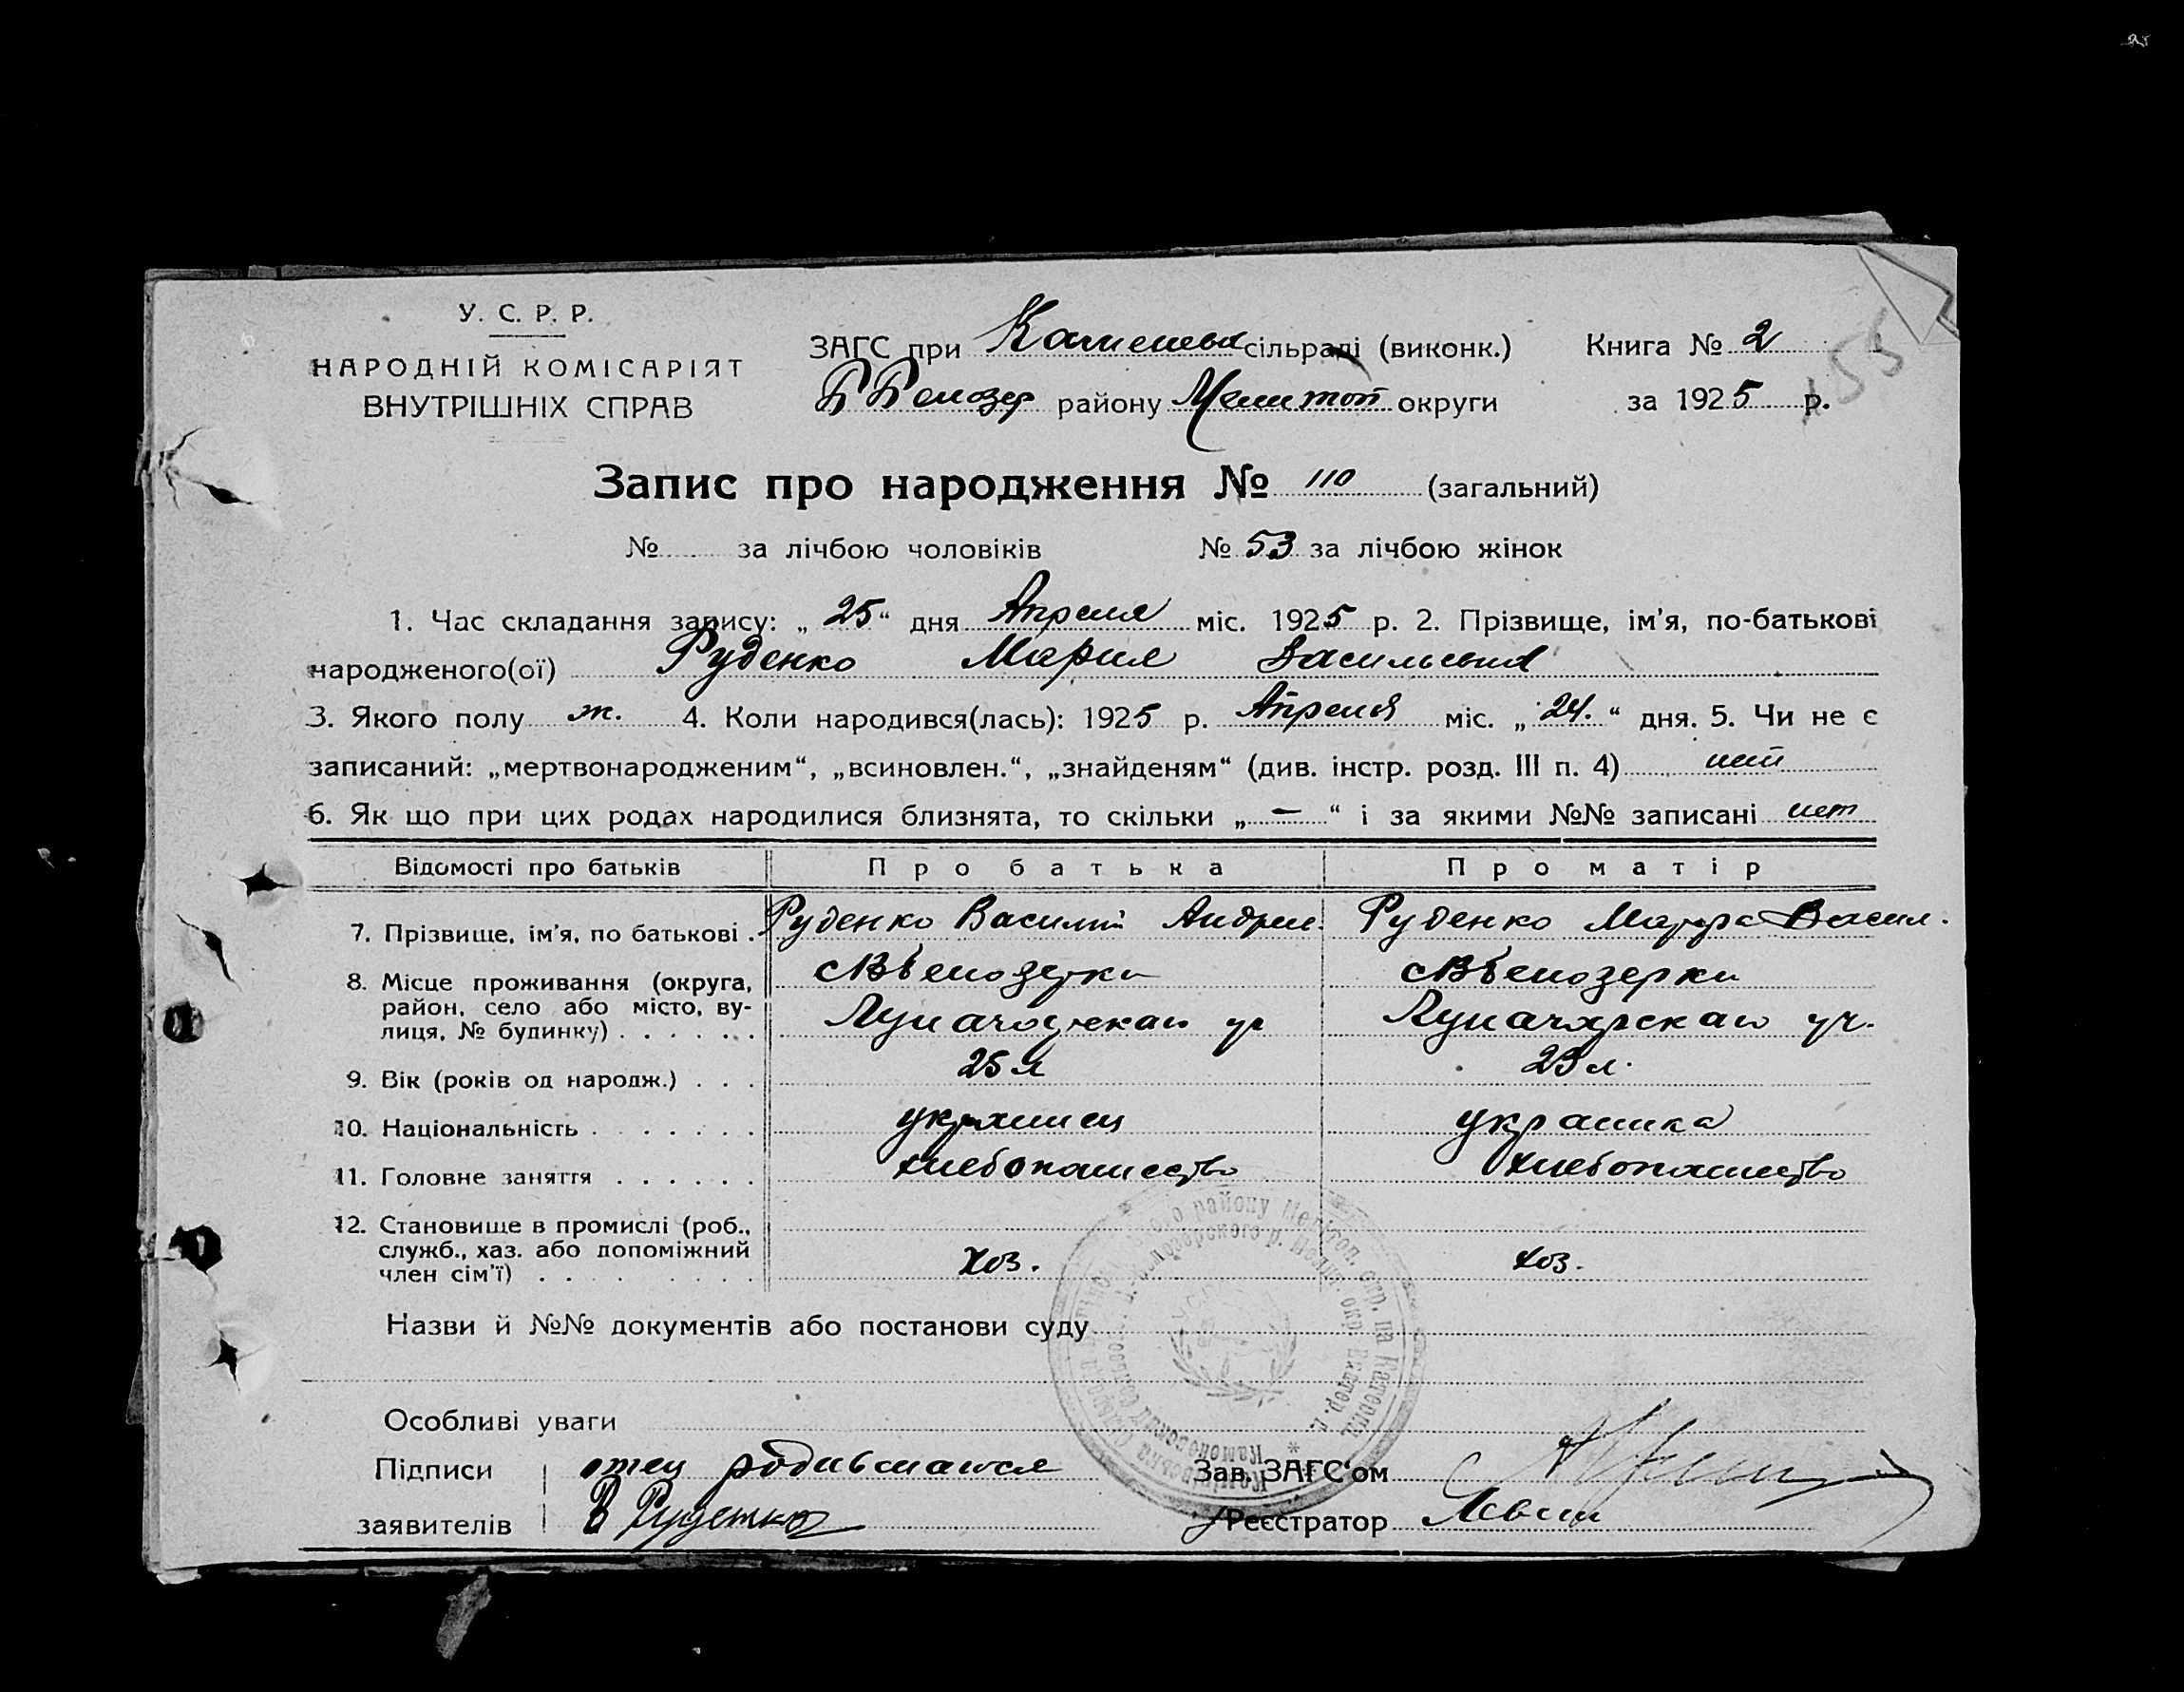 У. С. Р. Р.
НАРОДНІЙ КОМІСАРІЯТ
ВНУТРІШНІХ СПРАВ
ЗАГС при Каменськ сільраді (виконк.)
Б Белозер району Мелитоп округи
Книга № 2
за 1925 р.
Запис про народження № 110 (загальний)
№ за лічбою чоловіків № 53 за лічбою жінок
1. Час складання запису: „ 25 “ дня Апреля міс. 1925 р. 2. Прізвище, ім'я, по-батькові
народженого(ої) Руденко Мария Васильевна
3. Якого полу ж. 4. Коли народився(лась): 1925 р. Апреля міс. „ 24. “ дня. 5. Чи не є
записаний: „мертвонародженим“, „всиновлен.“, „знайденям“ (див. інстр. розд. III п. 4) нет
6. Як що при цих родах народилися близнята, то скільки „ — “ і за якими №№ записані нет
Відомості про батьків Про батька Про матір
7. Прізвище, ім'я, по батькові . Руденко Василий Андрие. Руденко Васил.
8. Місце проживання (округа,
район, село або місто, ву-
лиця, № будинку) . . . . . .
сВБелозерка сВБелозерка
Луначарская ул Луначарская ул.
9. Вік (років од народж.) . . . 25 л 23 л.
10. Національність . . . . . . . украинец украинка
11. Головне заняття . . . . . . хлебопашество хлебопашество
12. Становище в промислі (роб.,
служб., хаз. або допоміжний
член сім'ї) . . . . . . . . хоз. хоз.
Назви й №№ документів або постанови суду
Особливі уваги
Підписи отец родившагося Зав. ЗАГС'ом
заявителів В Руденко Реєстратор